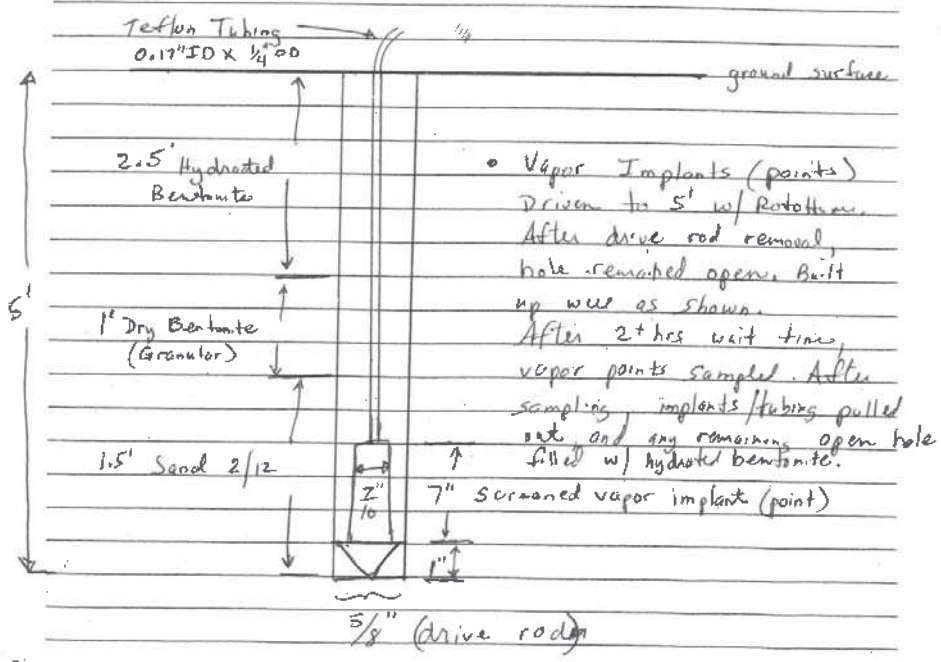 Teflon Tubing
0.17" ID X 1/4" OD
ground surface
2.5' Hydrated
Bentonite
5'
1' Dry Bentonite
(Granular)
1.5' Sand 2/12
• Vapor Implants (points)
Driven to 5' w/
After drive rod removal,
hole remained open. Built
up well as shown.
After 2+ hrs wait time,
vapor points sampled. After
sampling, implants/tubing pulled
out, and any remaining open hole
filled w/ hydrated bentonite.
7" Screened vapor implant (point)
1"
5/8" (drive rod)